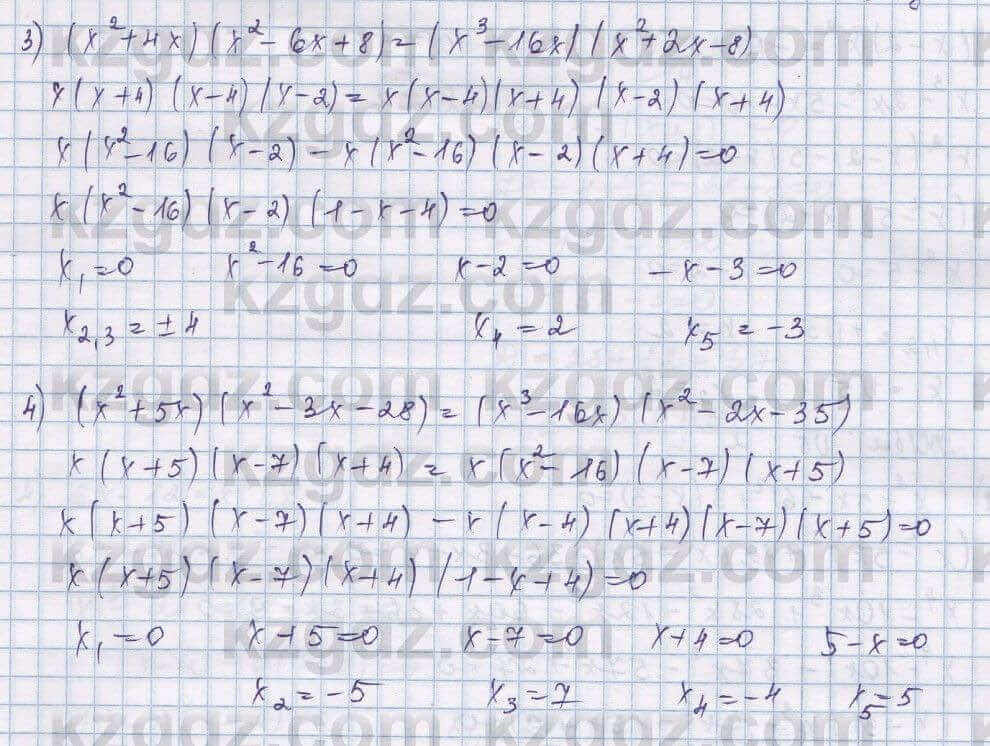 3) (x²+4x)(x²-6x+8)=(x³-16x)(x²+2x-8)
x(x+4)(x-4)(x-2)=x(x-4)(x+4)(x-2)(x+4)
x(x²-16)(x-2)-x(x²-16)(x-2)(x+4)=0
x(x²-16)(x-2)(1-x-4)=0
x₁=0 x²-16=0 x-2=0 -x-3=0
x₂,₃=±4 x₄=2 x₅=-3
4) (x²+5x)(x²-3x-28)=(x³-16x)(x²-2x-35)
x(x+5)(x-7)(x+4)=x(x²-16)(x-7)(x+5)
x(x+5)(x-7)(x+4)-x(x-4)(x+4)(x-7)(x+5)=0
x(x+5)(x-7)(x+4)(1-x+4)=0
x₁=0 x+5=0 x-7=0 x+4=0 5-x=0
x₂=-5 x₃=7 x₄=-4 x₅=5
kzgdz.com